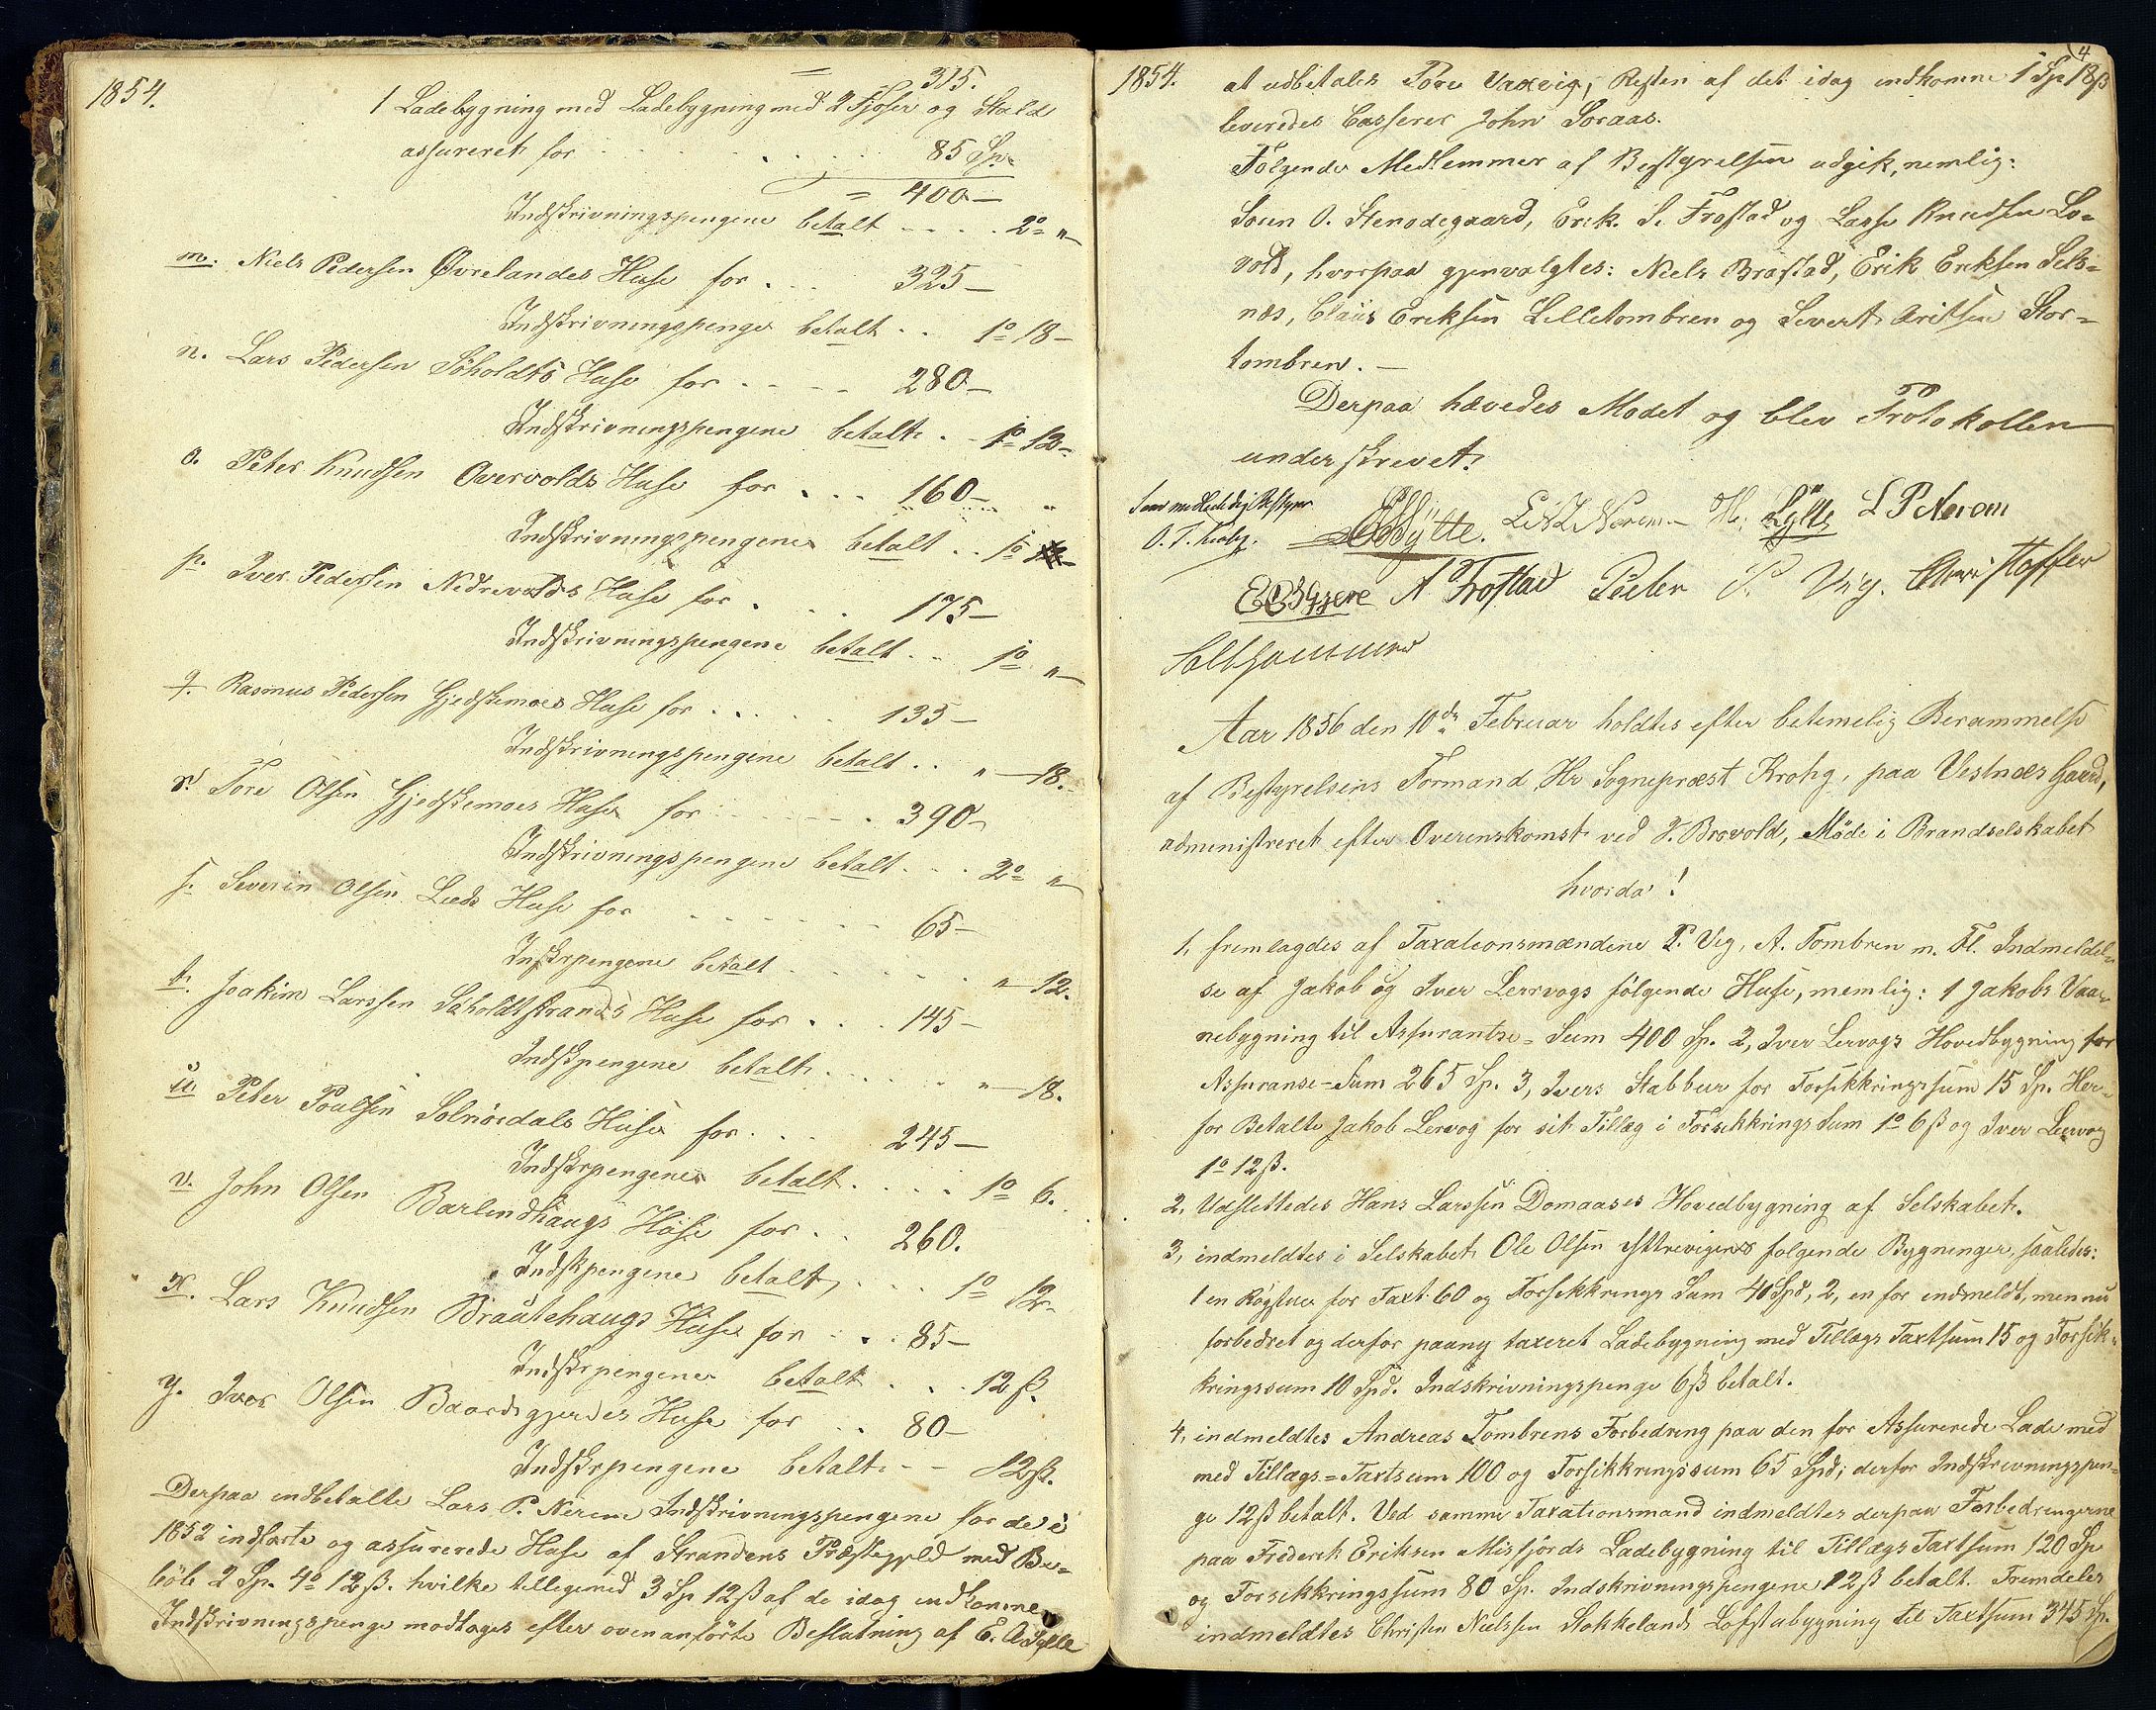 1854.
= 315.
1 Ladebygning med Ladebygning med 2 Fjøser og Stald
assureret for . . . . . 85 Sp.
= 400 —
Indskrivningspengene betalt . . . . 2º "
m. Niels Pedersen Øvrelandes Huse for . . . 325 —
Indskrivningspenge betalt . . 1º 18 —
n. Lars Pedersen Søholdts Huse for . . . . 280 —
Indskrivningspengene betalt . . 1º 12 —
o. Peter Knudsen Overvolds Huse for . . . 160 —
Indskrivningspengene betalt . . 1º
p. Iver Pedersen Nedrevolds Huse for . . . 175 —
Indskrivningspengene betalt . . 1º "
q. Rasmus Pedersen Gjedskemoes Huse for . . . . 135 —
Indskrivningspengene betalt . . " — 18.
r. Tore Olsen Gjedskemoes Huse for . . . . 390 —
Indskrivningspengene betalt . . . 2º "
s. Severin Olsen Lieds Huse for . . . . 65 —
Inskrpengene betalt . . . . " — 12.
t. Joakim Larssen Søholdtstrands Huse for . . . 145 —
Indskpengene betalt . . . . " — 18.
u. Peter Poulsen Solnørdals Huse for . . . 245 —
Indskrpengene betalt . . . . 1º 6.
v. John Olsen Barlindhaugs Huse for . . 260.
Indskpengene betalt, . . . 1º 12
x. Lars Knudsen Brautehaugs Huse for . . . 85 —
Indskrpengene betalt . . . 12 ß.
y. Iver Olsen Baardsgjerdes Huse for . . 80 —
Indskrpengene betalt . . 12 ß.
Derpaa indbetalte Lars P. Nerem Indskrivningspengene for de i
1852 indførte og assurerede Huse af Strandens Præstegjeld med Be-
løb 2 Sp. 4º 12 ß. hvilke tilligemed 3 Sp 12 ß af de idag indkomne
Indskrivningspenge modtages efter ovenanførte Beslutning af E. A. Sylte
4
1854. at udbetales Tore Vaxvig; Resten af det idag indkomne 1 Sp 18 ß
leveredes Casserer John Soraas.
Følgende Medlemmer af Bestyrelsen udgik, nemlig:
Soren O. Stenødegaard, Erik S. Frostad og Lasse Knudsen Lo-
vold, hvorpaa gjenvalgtes: Niels Brastad, Erik Eriksen Sels-
næs, Claus Eriksen Lilletombren og Sivert Aritsen Stor-
tombren. —
Derpaa hævedes Mødet og blev Protokollen
underskrevet.
Som medlem
O. T. Krohg. Sylte. Nerem H. Sylte L P Nerem
N Frostad Peder P. Vig. Christoffer
Aar 1856 den 10de Februar holdtes efter betimelig Berammelse
af Bestyrelsens Formand, Hr Sognepræst Krohg, paa Vestnæs Gaard,
administreret efter Overenskomst ved J. Brovold, Møde i Brandselskabet
hvorda!
1, fremlagdes af Taxationsmændene P. Vig, A. Tombren m. Fl. Indmeldel-
se af Jakob og Iver Lervogs følgende Huse, nemlig: 1 Jakobs Vaa-
nebygning til Assurantse-Sum 400 Sp. 2, Iver Lervogs Hovedbygning for
Assuranse-Sum 265 Sp. 3, Ivers Stabbur for Forsikkringssum 15 Sp. Her-
for Betalte Jakob Lervog for sit Tillæg i Forsikkrings Sum 1º 6 ß og Iver Lervog
1º 12 ß.
2, Udslettedes Hans Larssen Domaases Hovedbygning af Selskabet.
3, indmeldtes i Selskabet Ole Olsen følgende Bygninger, saaledes:
1 en Røgstue for Taxt 60 og Forsikkrings Sum 40 Spd, 2, en for indmeldt, men nu
forbedret og derfor paany taxeret Ladebygning med Tillægs Taxtsum 15 og Forsik-
kringssum 10 Spd. Indskrivningspenge 6 ß betalt.
4, indmeldtes Andreas Tombrens Forbedring paa den for Assurerede Lade med
med Tillægs-Taxtsum 100 og Forsikkringssum 65 Spd; derfor Indskrivningspen-
ge 12 ß betalt. Ved samme Taxationsmand indmeldtes derpaa Forbedringerne
paa Frederik Eriksen Misfjords Ladebygning til Tillægs Taxtsum 120 Sp
og Forsikkringssum 80 Sp. Indskrivningspengene 12 ß betalt. Fremdeles
indmeldtes Christen Nielssen Stokkelands Loftstubygning til Taxtsum 345 Sp.